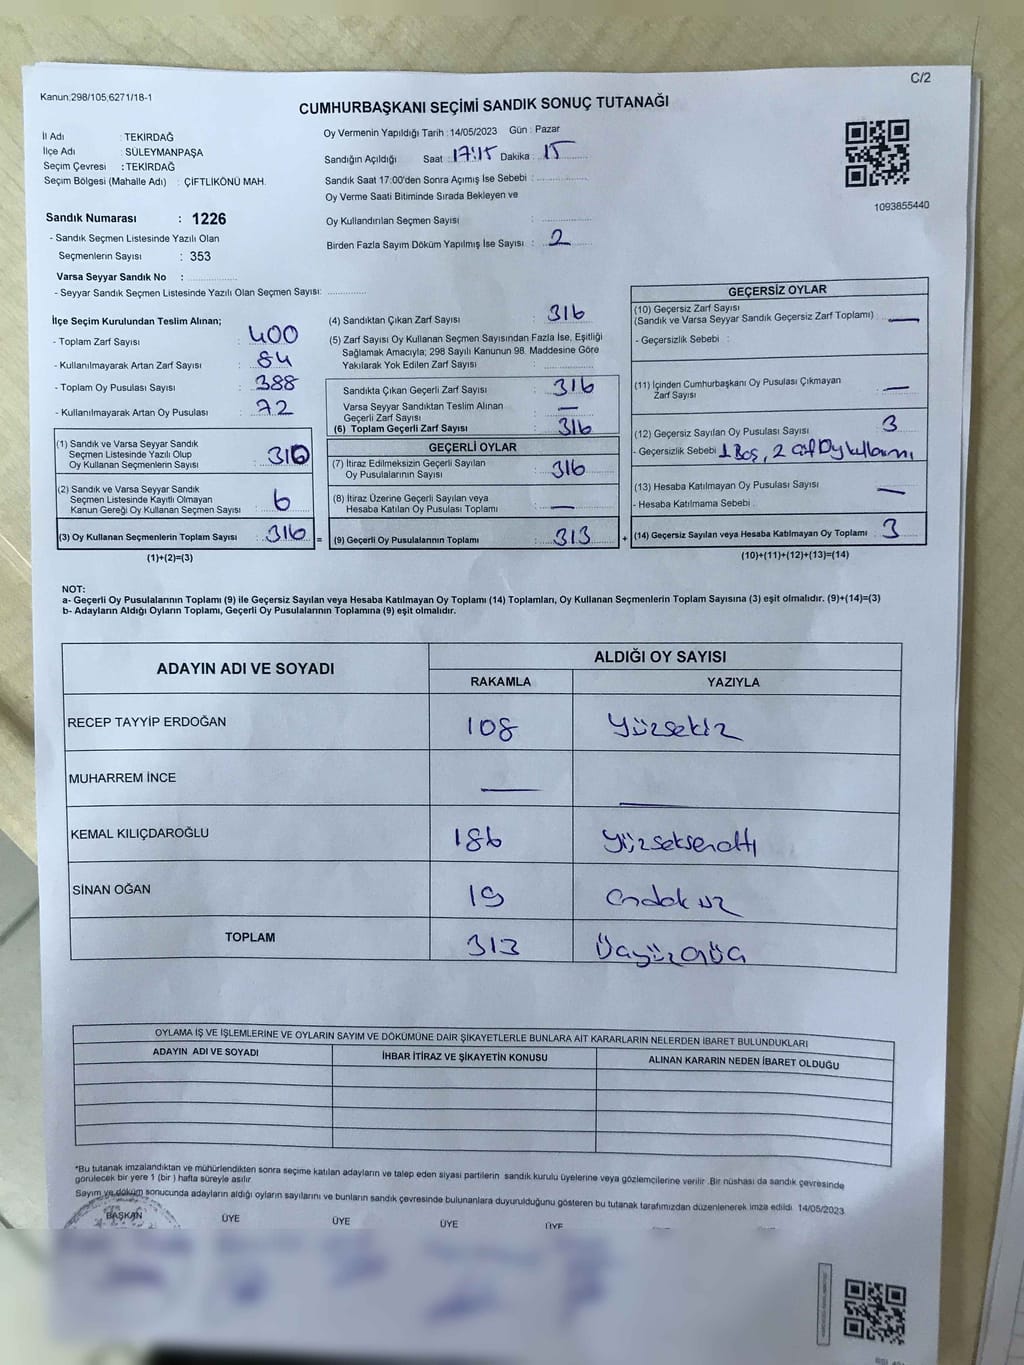 C/2
Kanun:298/105;6271/18-1
CUMHURBAŞKANI SEÇİMİ SANDIK SONUÇ TUTANAĞI
İl Adı : TEKİRDAĞ
İlçe Adı : SÜLEYMANPAŞA
Seçim Çevresi : TEKİRDAĞ
Seçim Bölgesi (Mahalle Adı) : ÇİFTLİKÖNÜ MAH.
Sandık Numarası : 1226
- Sandık Seçmen Listesinde Yazılı Olan
Seçmenlerin Sayısı : 353
Varsa Seyyar Sandık No :
- Seyyar Sandık Seçmen Listesinde Yazılı Olan Seçmen Sayısı:
Oy Vermenin Yapıldığı Tarih : 14/05/2023 Gün : Pazar
Sandığın Açıldığı Saat : 17:15 Dakika : 15
Sandık Saat 17:00'den Sonra Açımış İse Sebebi :
Oy Verme Saati Bitiminde Sırada Bekleyen ve
Oy Kullandırılan Seçmen Sayısı :
Birden Fazla Sayım Döküm Yapılmış İse Sayısı : 2
1093855440
İlçe Seçim Kurulundan Teslim Alınan;
- Toplam Zarf Sayısı : 400
- Kullanılmayarak Artan Zarf Sayısı : 84
- Toplam Oy Pusulası Sayısı : 388
- Kullanılmayarak Artan Oy Pusulası : 72
(1) Sandık ve Varsa Seyyar Sandık
Seçmen Listesinde Yazılı Olup
Oy Kullanan Seçmenlerin Sayısı : 310
(2) Sandık ve Varsa Seyyar Sandık
Seçmen Listesinde Kayıtlı Olmayan
Kanun Gereği Oy Kullanan Seçmen Sayısı : 6
(3) Oy Kullanan Seçmenlerin Toplam Sayısı : 316 =
(1)+(2)=(3)
(4) Sandıktan Çıkan Zarf Sayısı : 316
(5) Zarf Sayısı Oy Kullanan Seçmen Sayısından Fazla İse, Eşitliği
Sağlamak Amacıyla; 298 Sayılı Kanunun 98. Maddesine Göre
Yakılarak Yok Edilen Zarf Sayısı :
Sandıkta Çıkan Geçerli Zarf Sayısı : 316
Varsa Seyyar Sandıktan Teslim Alınan
Geçerli Zarf Sayısı : —
(6) Toplam Geçerli Zarf Sayısı : 316
GEÇERLİ OYLAR
(7) İtiraz Edilmeksizin Geçerli Sayılan
Oy Pusulasının Sayısı : 316
(8) İtiraz Üzerine Geçerli Sayılan veya
Hesaba Katılan Oy Pusulası Toplamı : —
(9) Geçerli Oy Pusulalarının Toplamı : 313 +
GEÇERSİZ OYLAR
(10) Geçersiz Zarf Sayısı
(Sandık ve Varsa Seyyar Sandık Geçersiz Zarf Toplamı) : —
- Geçersizlik Sebebi :
(11) İçinden Cumhurbaşkanı Oy Pusulası Çıkmayan
Zarf Sayısı : —
(12) Geçersiz Sayılan Oy Pusulası Sayısı : 3
- Geçersizlik Sebebi : 1 Boş, 2 Çift Oy kullanımı
(13) Hesaba Katılmayan Oy Pusulası Sayısı : —
- Hesaba Katılmama Sebebi :
(14) Geçersiz Sayılan veya Hesaba Katılmayan Oy Toplamı : 3
(10)+(11)+(12)+(13)=(14)
NOT:
a- Geçerli Oy Pusulalarının Toplamı (9) ile Geçersiz Sayılan veya Hesaba Katılmayan Oy Toplamı (14) Toplamları, Oy Kullanan Seçmenlerin Toplam Sayısına (3) eşit olmalıdır. (9)+(14)=(3)
b- Adayların Aldığı Oyların Toplamı, Geçerli Oy Pusulalarının Toplamına (9) eşit olmalıdır.
ADAYIN ADI VE SOYADI
ALDIĞI OY SAYISI
RAKAMLA YAZIYLA
RECEP TAYYİP ERDOĞAN 108 Yüzsekiz
MUHARREM İNCE — —
KEMAL KILIÇDAROĞLU 186 Yüzseksenaltı
SİNAN OĞAN 19 ondokuz
TOPLAM 313 Üçyüzonüç
OYLAMA İŞ VE İŞLEMLERİNE VE OYLARIN SAYIM VE DÖKÜMÜNE DAİR ŞİKAYETLERLE BUNLARA AİT KARARLARIN NELERDEN İBARET BULUNDUKLARI
ADAYIN ADI VE SOYADI İHBAR İTİRAZ VE ŞİKAYETİN KONUSU ALINAN KARARIN NEDEN İBARET OLDUĞU
*Bu tutanak imzalandıktan ve mühürlendikten sonra seçime katılan adayların ve talep eden siyasi partilerin sandık kurulu üyelerine veya gözlemcilerine verilir .Bir nüshası da sandık çevresinde
görülecek bir yere 1 (bir ) hafta süreyle asılır.
Sayım ve döküm sonucunda adayların aldığı oyların sayılarını ve bunların sandık çevresinde bulunanlara duyurulduğunu gösteren bu tutanak tarafımızdan düzenlenerek imza edildi. 14/05/2023
BAŞKAN ÜYE ÜYE ÜYE ÜYE